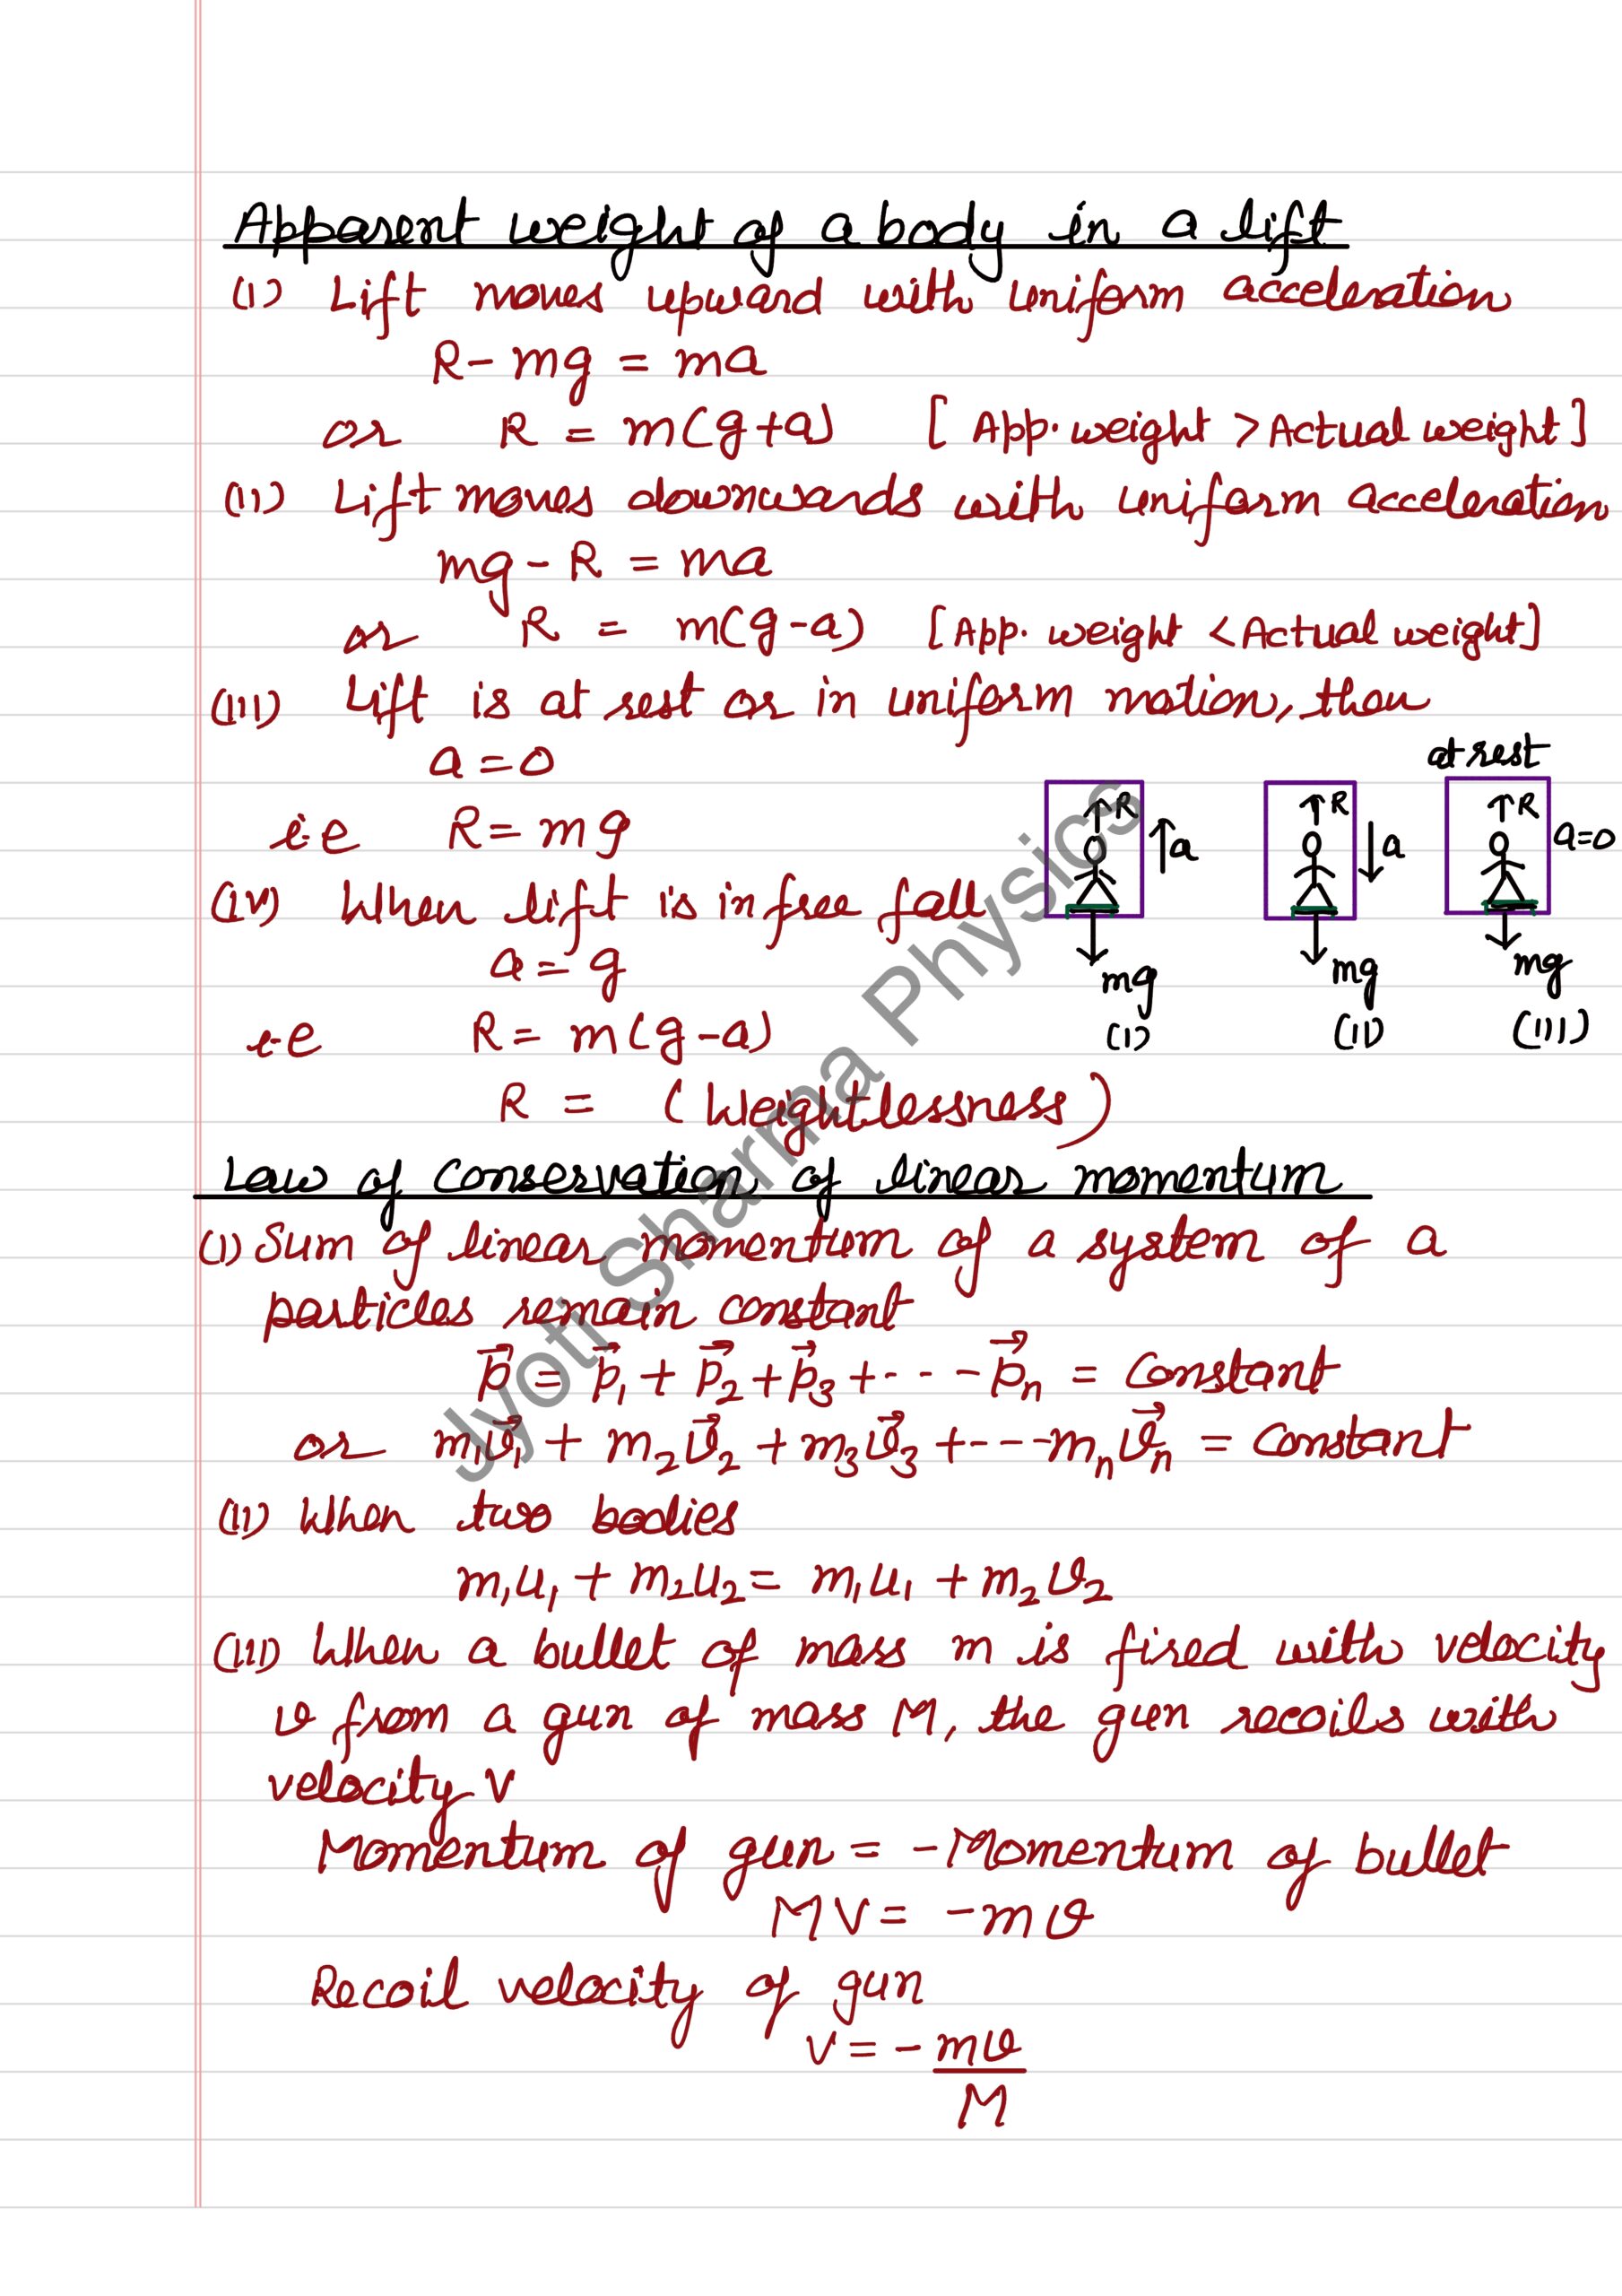 Apparent weight of a body in a lift
(i) Lift moves upward with uniform acceleration
R - mg = ma
or R = m(g+a) [App. weight > Actual weight]
(ii) Lift moves downwards with uniform acceleration
mg - R = ma
or R = m(g-a) [App. weight < Actual weight]
(iii) Lift is at rest or in uniform motion, then
a = 0
i.e R = mg
(iv) When lift is in free fall
a = g
i.e R = m(g-a)
R = (Weightlessness)
at rest
R a R a R a=0
mg mg mg
(i) (ii) (iii)
Law of Conservation of linear momentum
(i) Sum of linear momentum of a system of a
particles remain constant
p⃗ = p⃗₁ + p⃗₂ + p⃗₃ + ---- p⃗ₙ = Constant
or m₁v⃗₁ + m₂v⃗₂ + m₃v⃗₃ + ---- mₙv⃗ₙ = Constant
(ii) When two bodies
m₁u₁ + m₂u₂ = m₁u₁ + m₂v₂
(iii) When a bullet of mass m is fired with velocity
v from a gun of mass M, the gun recoils with
velocity V
Momentum of gun = -Momentum of bullet
MV = -mv
Recoil velocity of gun
V = - mv/M
Jyoti Sharma Physics